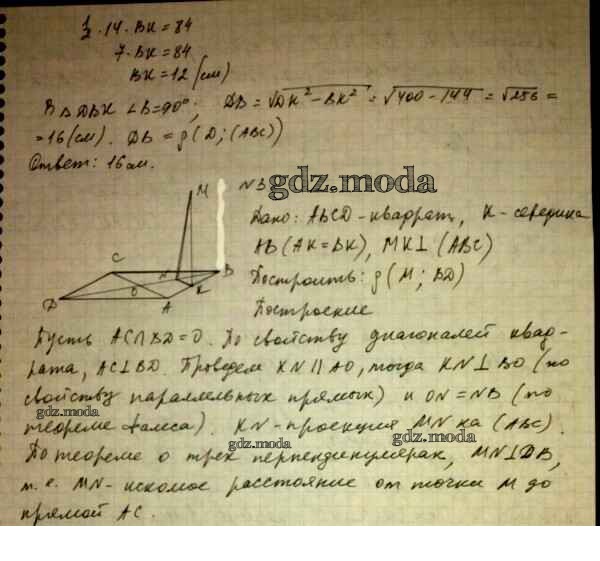 1/2·14·BK=84
7·BK=84
BK=12 (см)
В △DBK ∠B=90°; DB=√DK²−BK²=√400−144=√256=
=16(см). DB=ρ(D;(ABC))
Ответ: 16см.
N3
gdz.moda
Дано: ABCD-квадрат, K-середина
AB(AK=BK), MK⊥(ABC)
Построить: ρ(M; BD)
Построение
M
C
N
B
K
D
O
A
Пусть AC∩BD=O. По свойству диагоналей квад-
рата, AC⊥BD. Проведем KN∥AO, тогда KN⊥BO (по
свойству параллельных прямых) и ON=NB (по
gdz.moda
теореме Фалеса). KN-проекция MN на (ABC).
gdz.moda
gdz.moda
По теореме о трех перпендикулярах, MN⊥DB,
т.е. MN-искомое расстояние от точки M до
прямой AC.